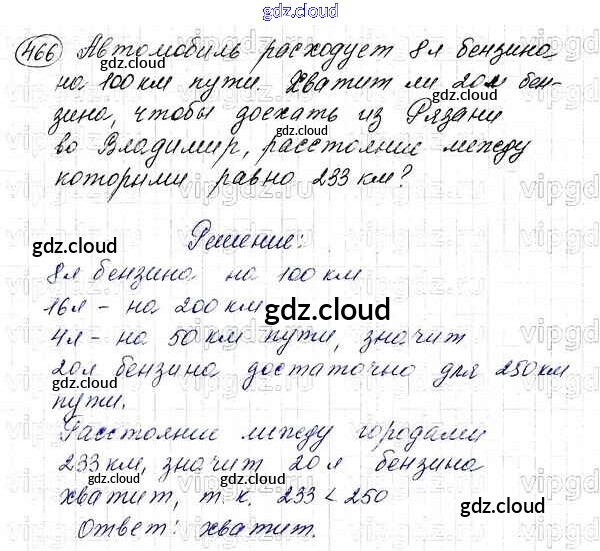 gdz.cloud
466 Автомобиль расходует 8л бензина
на 100км пути. Хватит ли 20л бен-
зина, чтобы доехать из Рязани
во Владимир, расстояние между
которыми равно 233 км?
Решение:
8л бензина на 100км
16л - на 200км
4л - на 50км пути, значит
20л бензина достаточно для 250км
пути.
Расстояние между городами
233км, значит 20л бензина
хватит, т.к. 233 < 250
Ответ: хватит.